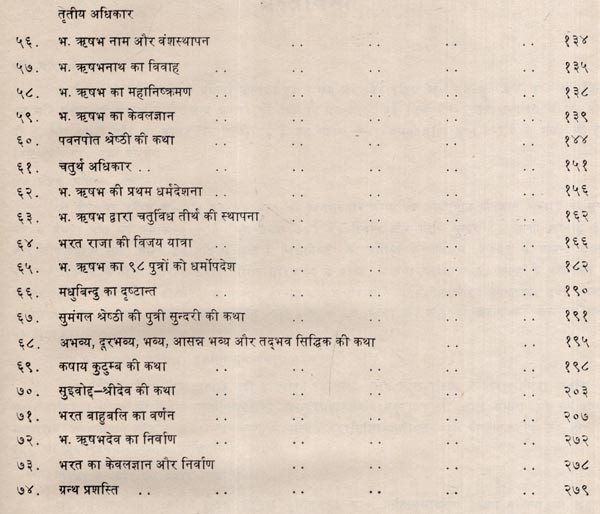 तृतीय अधिकार
५६. भ. ऋषभ नाम और वंशस्थापन .. .. .. .. .. १३४
५७. भ. ऋषभनाथ का विवाह .. .. .. .. .. .. १३५
५८. भ. ऋषभ का महानिष्क्रमण .. .. .. .. .. १३८
५९. भ. ऋषभ का केवलज्ञान .. .. .. .. .. .. १३९
६०. पवनपोत श्रेष्ठी की कथा .. .. .. .. .. .. १४४
६१. चतुर्थ अधिकार .. .. .. .. .. .. .. १५१
६२. भ. ऋषभ की प्रथम धर्मदेशना .. .. .. .. .. १५६
६३. भ. ऋषभ द्वारा चतुर्विध तीर्थ की स्थापना .. .. .. .. १६२
६४. भरत राजा की विजय यात्रा .. .. .. .. .. १६६
६५. भ. ऋषभ का ९८ पुत्रों को धर्मोपदेश .. .. .. .. १८२
६६. मधुबिन्दु का दृष्टान्त .. .. .. .. .. .. १९०
६७. सुमंगल श्रेष्ठी की पुत्री सुन्दरी की कथा .. .. .. .. १९१
६८. अभव्य, दूरभव्य, भव्य, आसन्न भव्य और तद्भव सिद्धिक की कथा .. .. १९५
६९. कषाय कुटुम्ब की कथा .. .. .. .. .. .. १९८
७०. सुइवोद्द-श्रीदेव की कथा .. .. .. .. .. २०३
७१. भरत बाहुबलि का वर्णन .. .. .. .. .. .. २०७
७२. भ. ऋषभदेव का निर्वाण .. .. .. .. .. .. २७२
७३. भरत का केवलज्ञान और निर्वाण .. .. .. .. .. २७८
७४. ग्रन्थ प्रशस्ति .. .. .. .. .. .. .. २७९